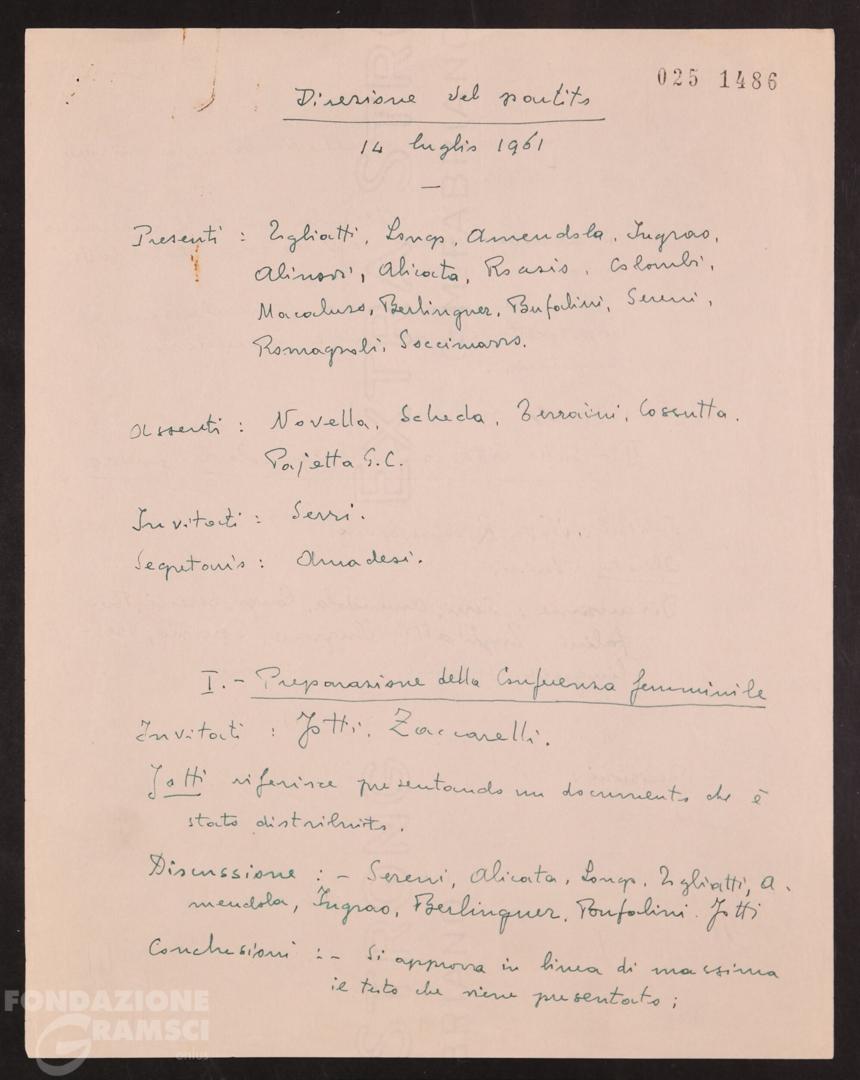 025 1486
Direzione del partito
14 luglio 1961
—
Presenti : Togliatti, Longo, Amendola, Ingrao,
Alinovi, Alicata, Roasio, Colombi,
Macaluso, Berlinguer, Bufalini, Sereni,
Romagnoli, Scoccimarro.
Assenti : Novella, Scheda, Terracini, Cossutta.
Pajetta G.C.
Invitati : Serri.
Segretario : Amadesi.
I. - Preparazione della Conferenza femminile
Invitati : Jotti, Zaccarelli.
Jotti riferisce presentando un documento che è
stato distribuito.
Discussione : - Sereni, Alicata, Longo, Togliatti, A-
mendola, Ingrao, Berlinguer, Bufalini. Jotti
Conclusioni : - Si approva in linea di massima
il testo che viene presentato ;
FONDAZIONE
GRAMSCI
onlus